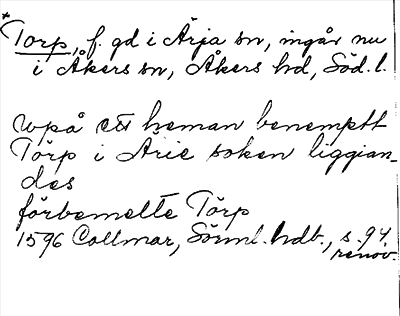 *Torp, f. gd i Ärja sn, ingår nu
i Åkers sn, Åkers hd, Söd. l.
wpå ett heman benemptt
Törp i Arie soken liggian-
des
förbemelte Törp
1596 Collmar, Sörml. hdb., s. 94
renov.